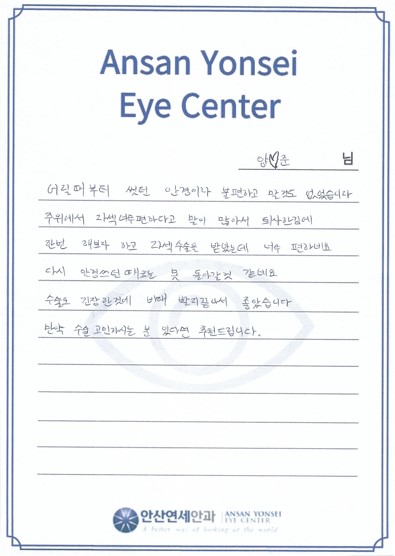 Ansan Yonsei
Eye Center
양♡준 님
어릴때부터 썼던 안경이라 불편하고 말것도 없었습니다
주위에서 라섹너무편하다고 말이 많아서 퇴사한김에
한번 해보자 하고 라섹수술을 받았는데 너무 편하네요
다시 안경쓰던때로는 못 돌아갈것 같네요
수술도 긴장한것에 비해 빨리끝나서 좋았습니다
만약 수술고민하시는 분 있다면 추천드립니다.
안산연세안과 ANSAN YONSEI
EYE CENTER
A better way of looking at the world